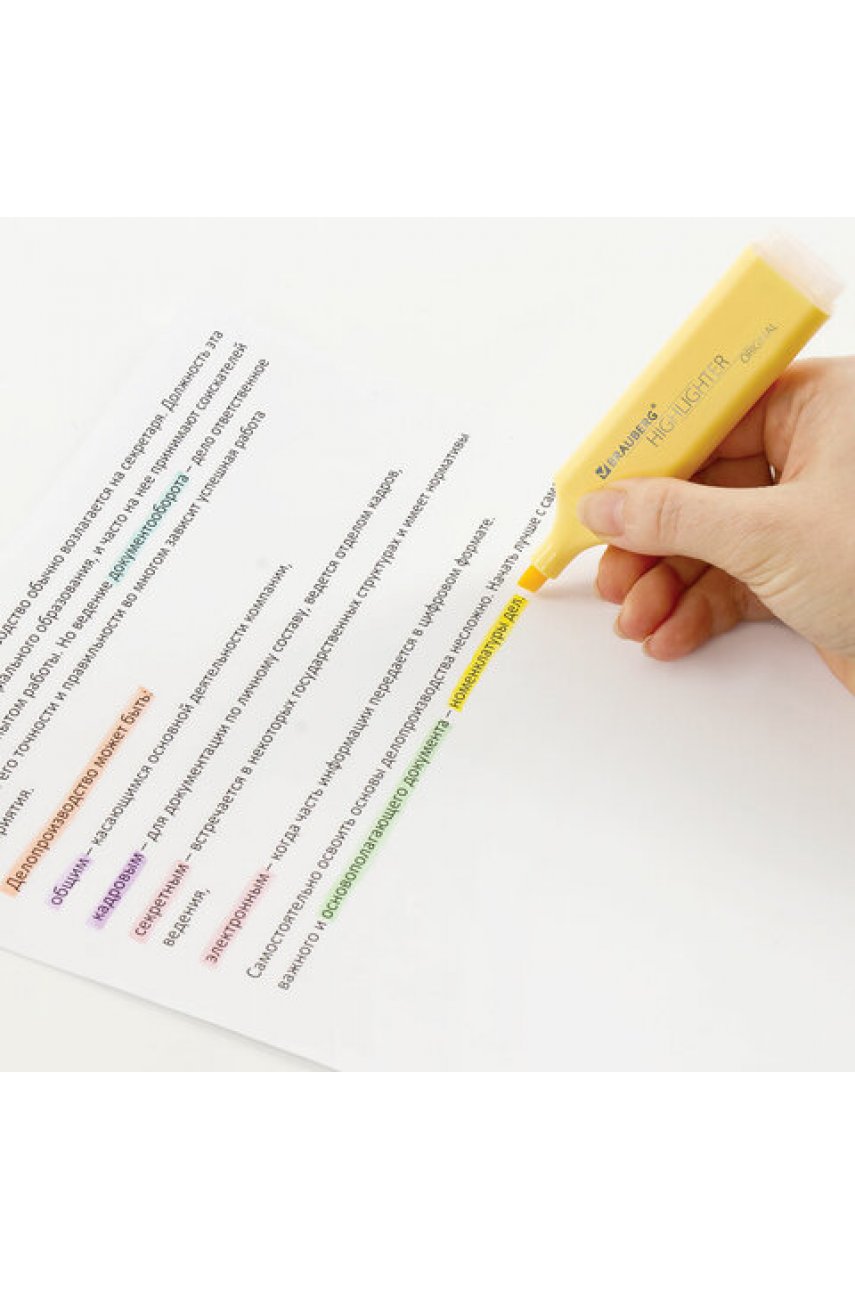 водство обычно возлагается на секретаря. Должность эта
иального образования, и часто на нее принимают соискателей
ытом работы. Но ведение документооборота – дело ответственное
его точности и правильности во многом зависит успешная работа
риятия.
Делопроизводство может быть:
общим – касающимся основной деятельности компании,
кадровым – для документации по личному составу, ведется отделом кадров,
секретным – встречается в некоторых государственных структурах и имеет нормативы
ведения,
электронным – когда часть информации передается в цифровом формате.
Самостоятельно освоить основы делопроизводства несложно. Начать лучше с сам
важного и основополагающего документа – номенклатуры дел
BRAUBERG®
HIGHLIGHTER
ORIGINAL